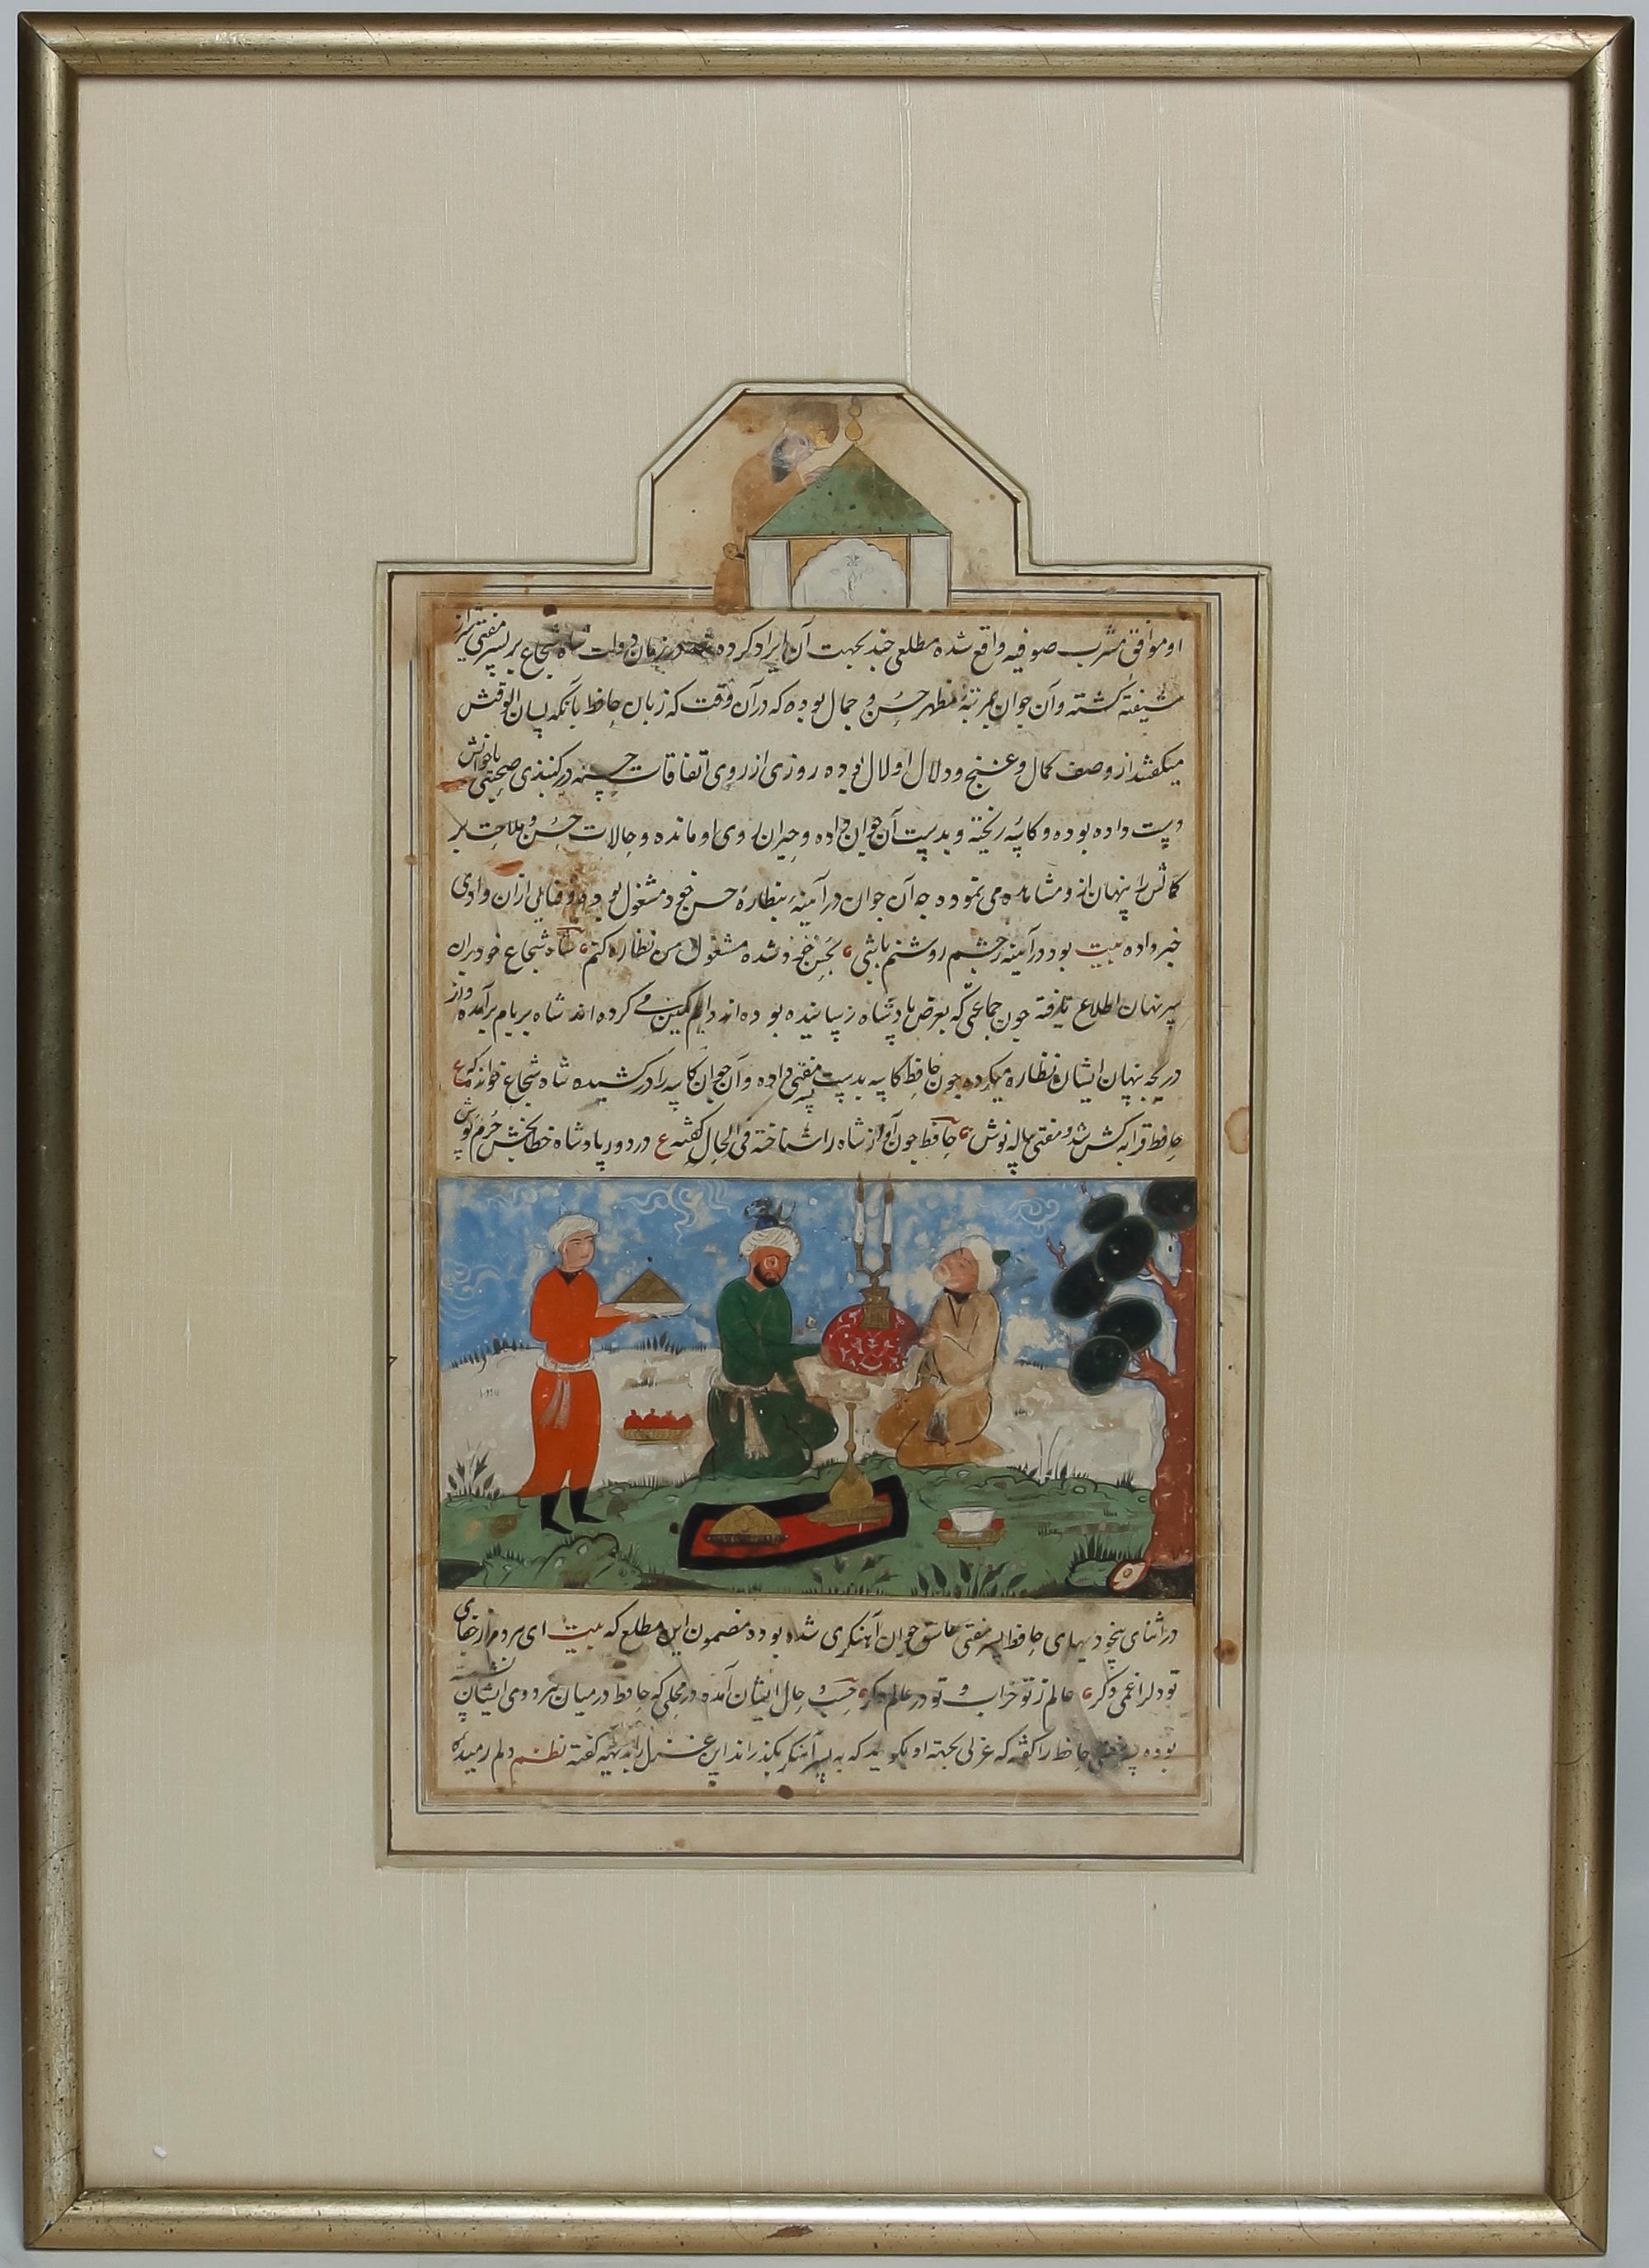 او موافق مشرب صوفیه واقع شده مطلعی چند بجهت آن ایراد کرده شد در زمان دولت شاه شجاع بر پسر مفتی شیراز
شیفته گشته و آن جوان بمرتبهٔ مظهر حسن و جمال بوده که در آن وقت که زبان حافظ بآنکه لسان الوقتش
میگفتند از وصف کمال و غنج و دلال او لال بوده روزی از روی اتفاقات حسنه در گنبذی صحبتی باجوانش
دست داده بوده و کاسه ریخته و بدست آن جوان داده و حیران روی او مانده و حالات حسن و ملاحت بر
کمالش را پنهان ازو مشاهده می نموده چه آن جوان در آینه بنظارهٔ حسن خود مشغول بوده و ازان وادی
خبر داده بیت بود در آینه چشم روشنم باشی بحسن خود شده مشغول من نظاره کنم شاه شجاع خود بران
سر نهان اطلاع یافته چون جماعتی که بعرض پادشاه رسانیده بوده اند دایم کمین می کرده اند شاه بر بام برآمده و از
دریچه پنهان ایشان نظاره میکرده چون حافظ کاسه بدست مفتی داده و آن جوان کاسه را در کشیده شاه شجاع خوانده که ع
حافظ قرابه کش شد و مفتی پیاله نوش حافظ چون آواز شاه را شناخته فی الحال گفته ع در دور پادشاه خطابخش جرم پوش
در اثنای بیخودیهای حافظ پسر مفتی عاشق جوان آهنگری شده بوده مضمون این مطلع که بیت ای
تو دلرا غمی دگر عالم ز تو خراب و تو در عالم دگر حسب و حال ایشان آمده در محلی که حافظ در میان هر دوی ایشان نشسته
بوده پسر مفتی حافظ را گفته که غزلی بجهته او بگوید که به پسر آهنگر بگذراند این غزل بدیهه گفته نظم دلم رمیده